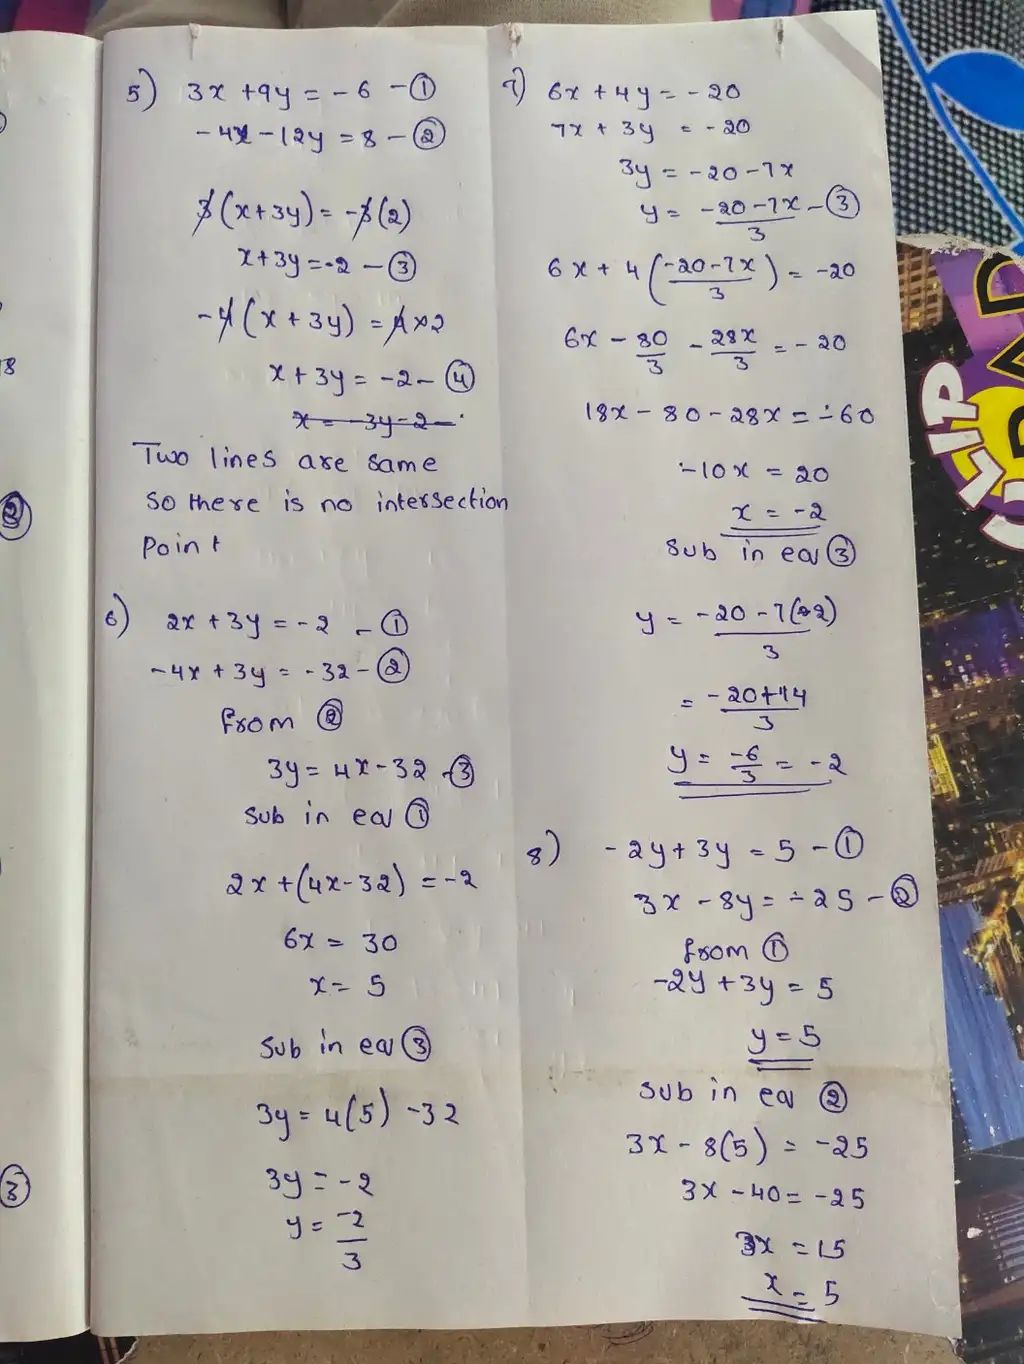 5) 3x + 9y = - 6 - ①
- 4x - 12y = 8 - ②
3(x+3y) = -3(2)
x+3y = -2 - ③
-4(x + 3y) = 4×2
x + 3y = -2 - ④
x = -3y-2 -
Two lines are same
so there is no intersection
Point
6) 2x + 3y = - 2 - ①
- 4x + 3y = - 32 - ②
from ②
3y = 4x - 32 - ③
Sub in eq ①
2x + (4x-32) = -2
6x = 30
x = 5
Sub in eq ③
3y = 4(5) - 32
3y = - 2
y = -2/3
7) 6x + 4y = - 20
7x + 3y = - 20
3y = - 20 - 7x
y = -20-7x/3 - ③
6x + 4(-20-7x/3) = -20
6x - 80/3 - 28x/3 = - 20
18x - 80 - 28x = - 60
-10x = 20
x = -2
Sub in eq ③
y = -20 - 7(-2)/3
= -20+14/3
y = -6/3 = -2
8) - 2y + 3y = 5 - ①
3x - 8y = - 25 - ②
from ①
-2y + 3y = 5
y = 5
Sub in eq ②
3x - 8(5) = -25
3x - 40 = -25
3x = 15
x = 5
8
②
③
CLIP